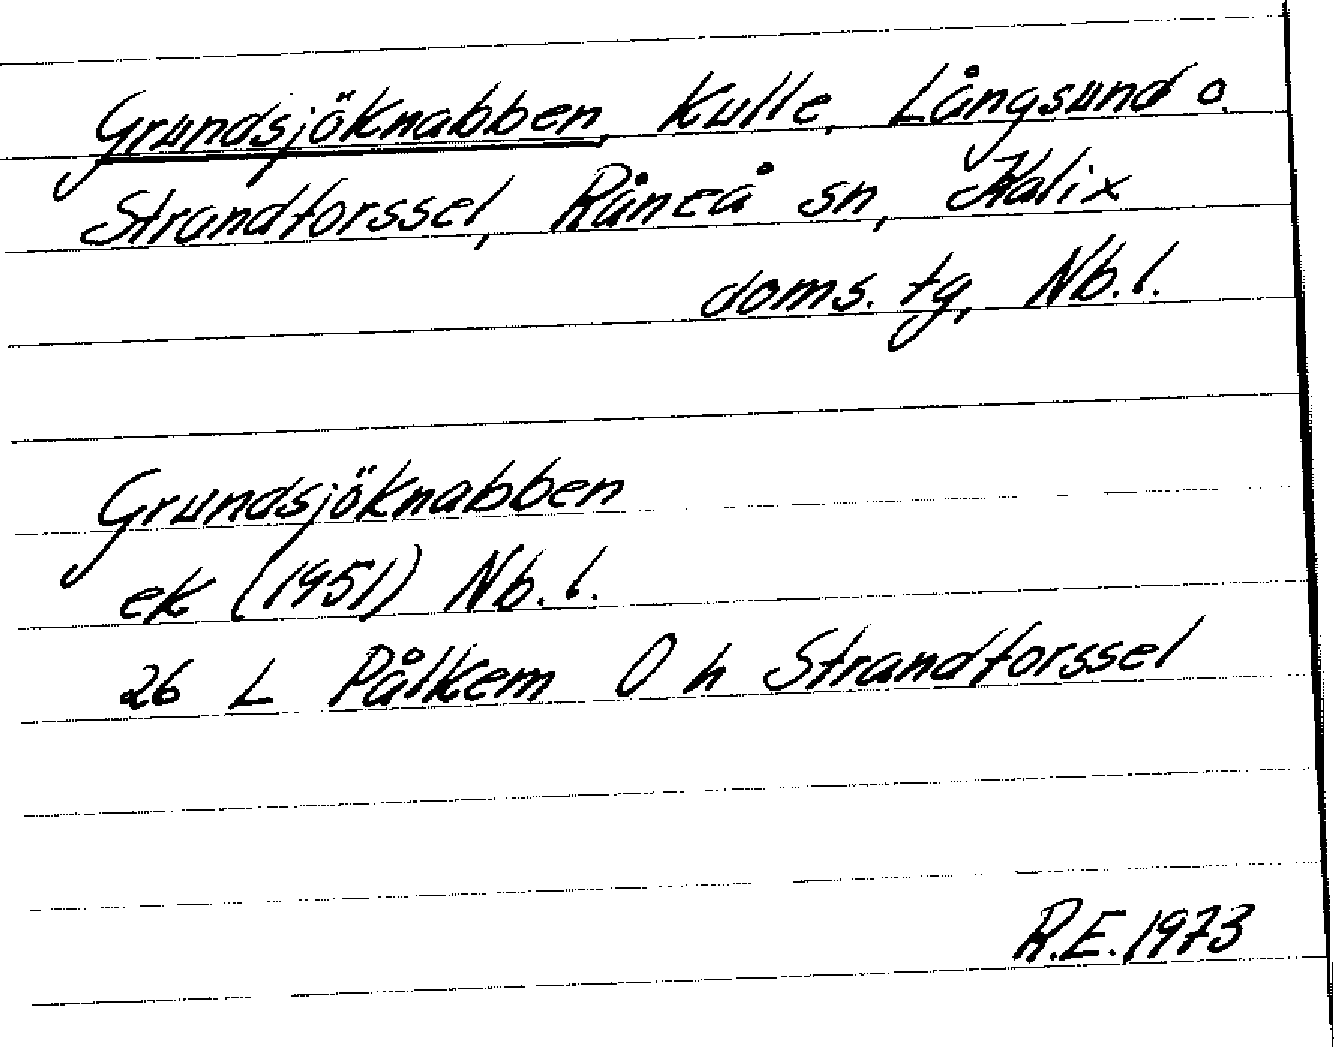 Grundsjöknabben, Kulle, Långsund o.
Strandforssel, Råneå sn, Kalix
doms. tg, Nb. l.
Grundsjöknabben
ek (1951) Nb. l.
26 L Pålkem O h Strandforssel
R.E. 1973